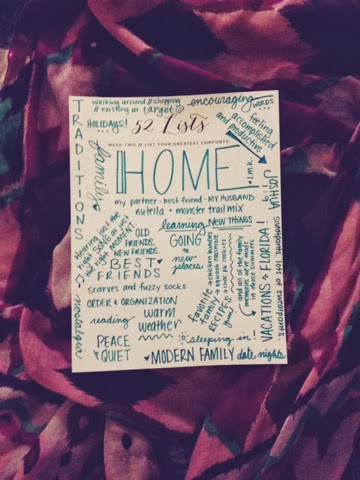 walking around // shopping
// existing at target
encouraging
WORDS
HOLIDAYS!
52 Lists
feeling
accomplished
and productive
WEEK TWO // LIST YOUR GREATEST COMFORTS
TRADITIONS & nostalgia
family
HOME
♥ l.m.k.
my partner · best friend · MY HUSBAND
nutella + monster trail mix
learning NEW THINGS
Hearing just the
right SONG at just
the right MOMENT
OLD
FRIENDS.
NEW FRIENDS.
BEST
FRIENDS
GOING
to
new
places
scarves and fuzzy socks
ORDER & ORGANIZATION
reading
warm
weather
PEACE
& QUIET
favorite
family
RECIPES
→ chicken
and all of the family
memories we've made
these summers
VACATIONS to FLORIDA!
sunshine, lots of
sleeping in!
♥ MODERN FAMILY date nights